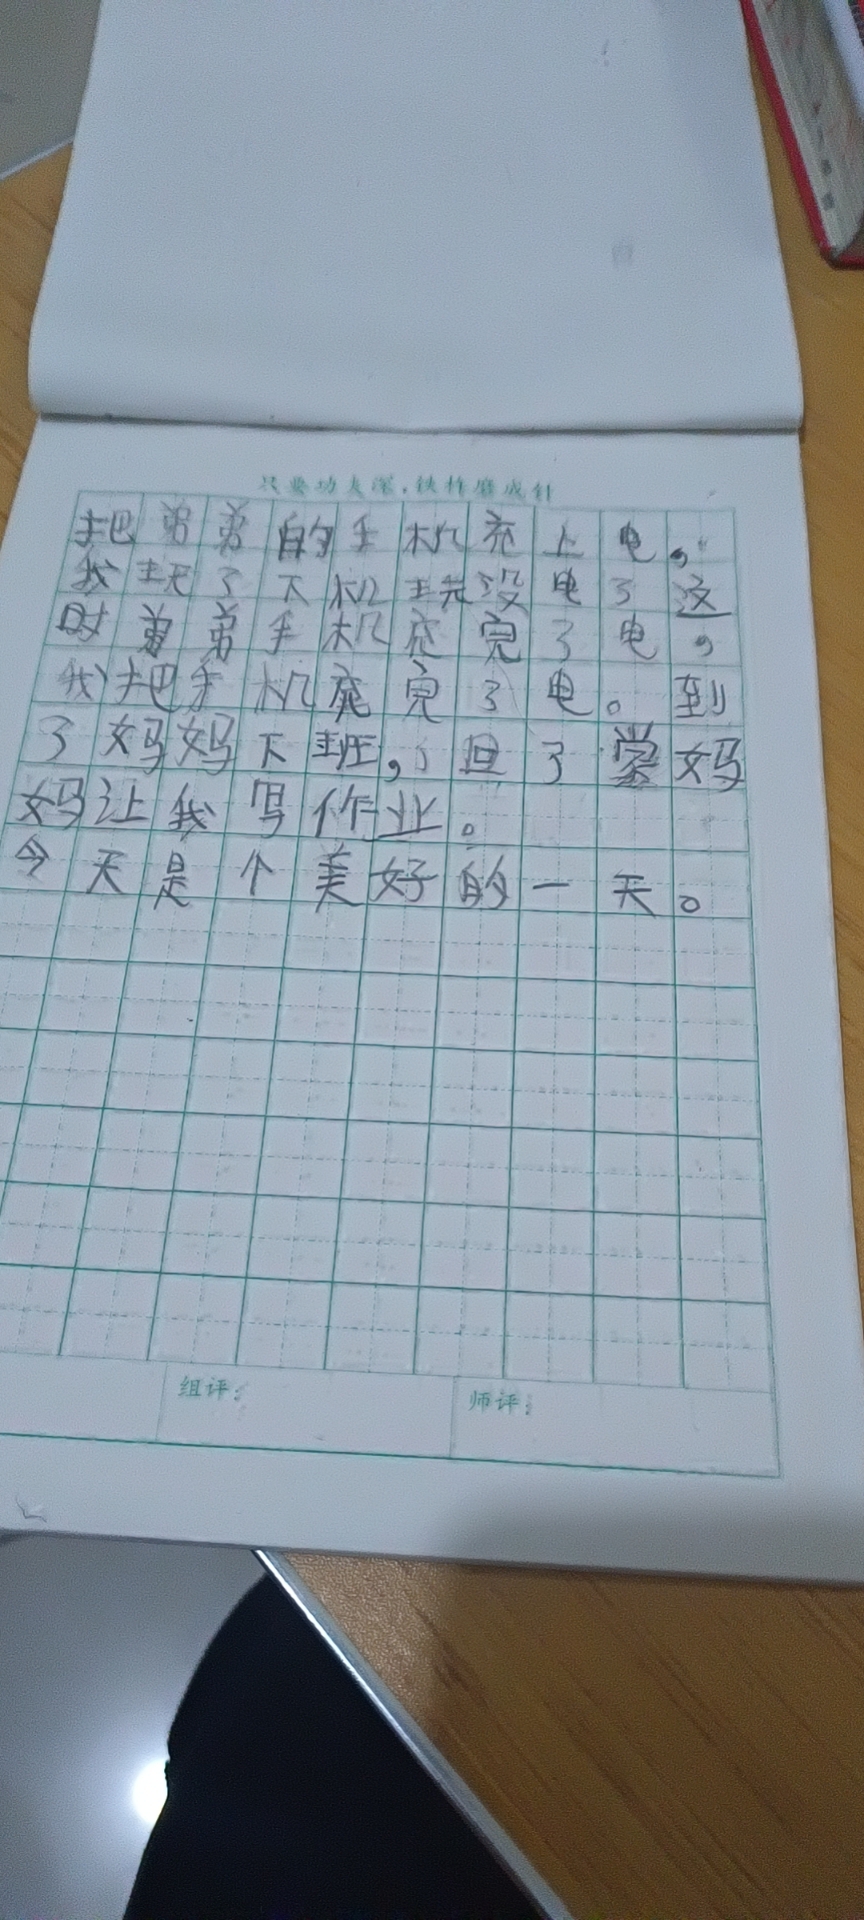 只要功夫深，铁杵磨成针
把弟弟的手机充上电，
我玩了下机就没电了这
时弟弟手机充完了电，
我把手机充完了电。到
了妈妈下班，回了掌妈
妈让我写作业。
今天是个美好的一天。
组评：
师评：